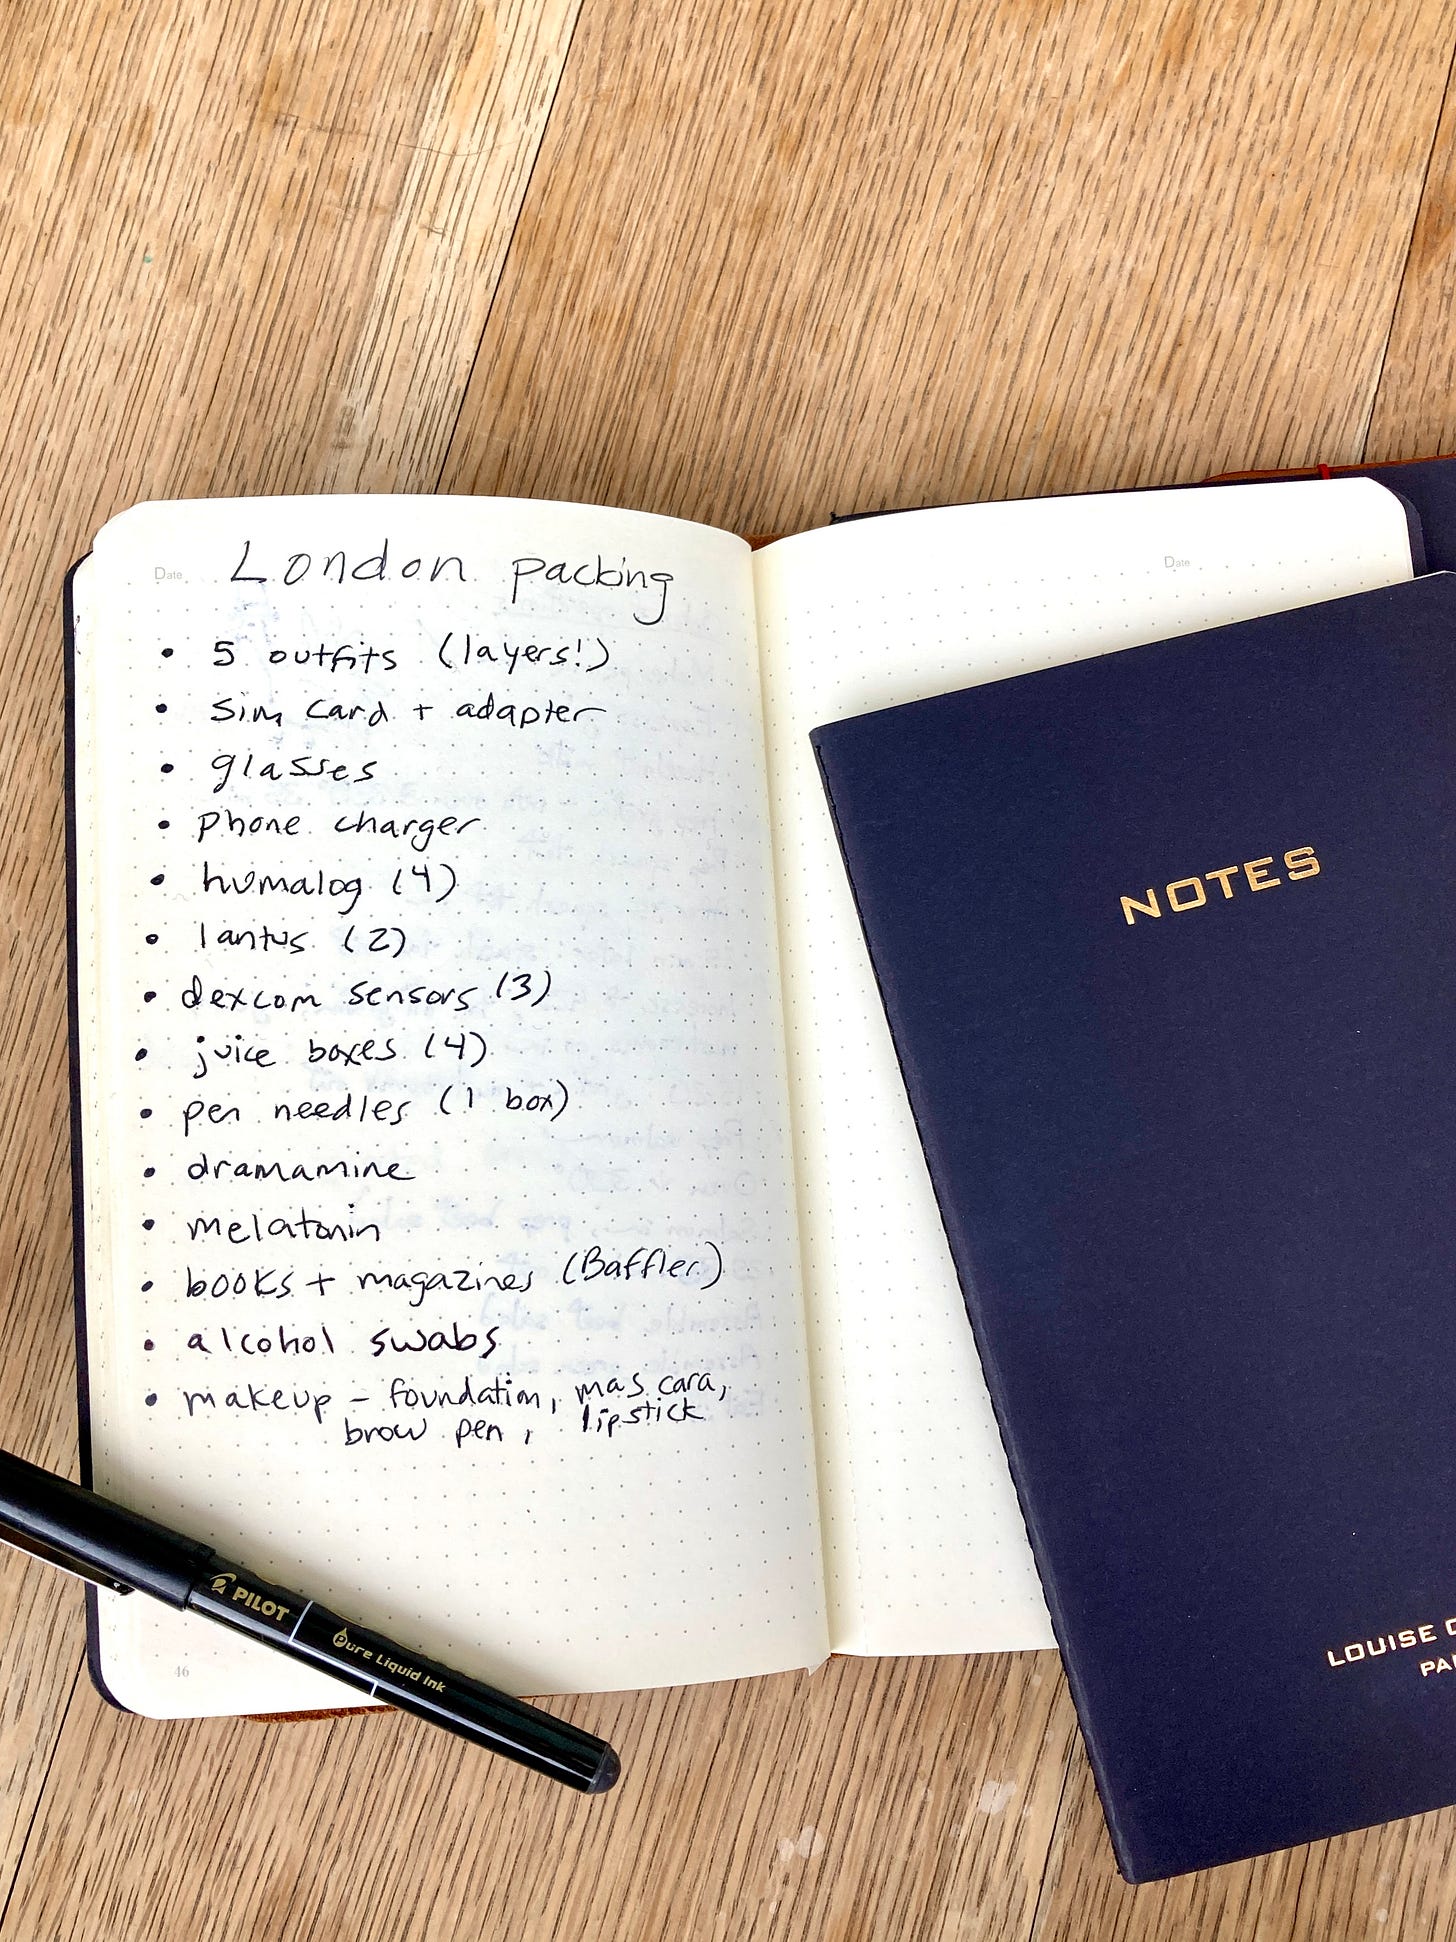 Date
London packing
• 5 outfits (layers!)
• sim card + adapter
• glasses
• phone charger
• humalog (4)
• lantus (2)
• dexcom sensors (3)
• juice boxes (4)
• pen needles (1 box)
• dramamine
• melatonin
• books + magazines (Baffler)
• alcohol swabs
• makeup - foundation, mascara,
brow pen, lipstick
46
Date
NOTES
LOUISE
PILOT
Pure Liquid Ink